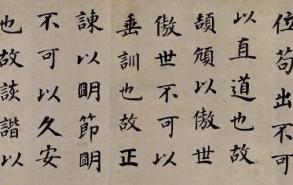 位苟出不可
以直道也故
頡頏以傲世
傲世不可以
垂訓也故正
諫以明節明
不可以久安
也故詼諧以